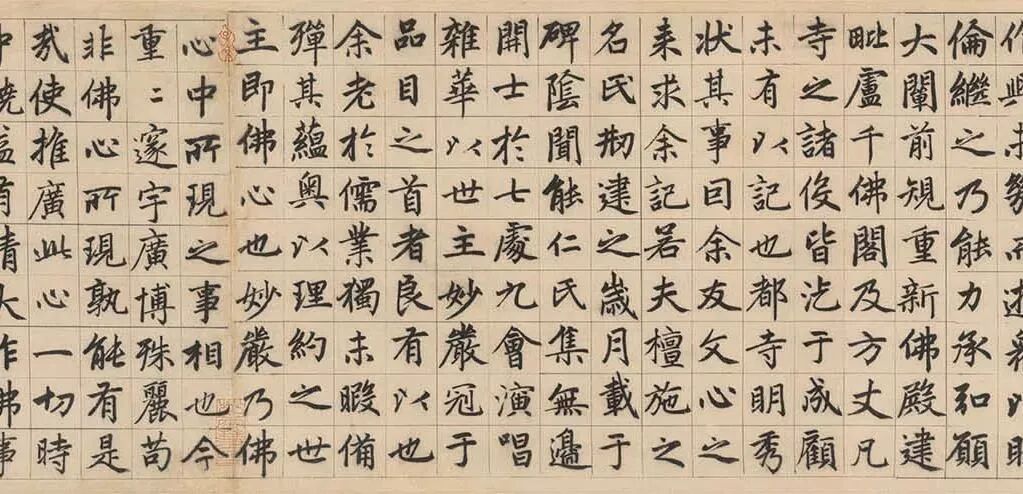 作興未幾而逝以明
倫繼之乃能力承和願
大闡前規重新佛殿建
毗盧千佛閣及方丈凡
寺之諸伇皆汔于成顧
未有以記也都寺明秀
狀其事囙余友文心之
来求余記若夫檀施之
名氏刱建之歲月載于
碑陰聞能仁氏集無邊
開士於七處九會演唱
雜華以世主妙嚴冠于
品目之首者良有以也
余老於儒業獨未暇備
殫其蘊奥以理約之世
主即佛心也妙嚴乃佛
心中所現之事相也今
重〻邃宇廣博殊麗苟
非佛心所現孰能有是
哉使推廣此心一切時
中饒益有情大作佛事